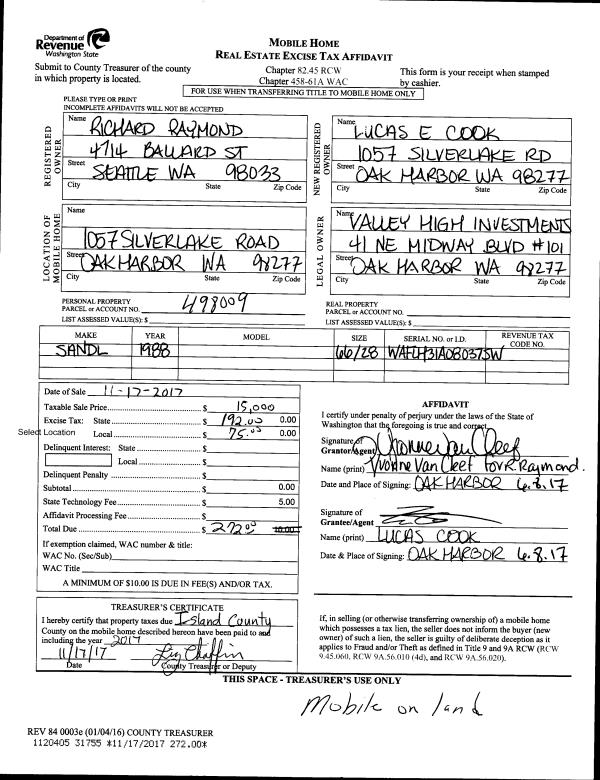 Department of
Revenue
Washington State
MOBILE HOME
REAL ESTATE EXCISE TAX AFFIDAVIT
Submit to County Treasurer of the county
in which property is located.
Chapter 82.45 RCW
Chapter 458-61A WAC
This form is your receipt when stamped
by cashier.
FOR USE WHEN TRANSFERRING TITLE TO MOBILE HOME ONLY
PLEASE TYPE OR PRINT
INCOMPLETE AFFIDAVITS WILL NOT BE ACCEPTED
REGISTERED OWNER
Name RICHARD RAYMOND
4714 BALLARD ST
Street SEATTLE WA 98033
City State Zip Code
NEW REGISTERED OWNER
Name LUCAS E COOK
1057 SILVERLAKE RD
Street OAK HARBOR WA 98277
City State Zip Code
LOCATION OF MOBILE HOME
Name
1057 SILVERLAKE ROAD
Street OAK HARBOR WA 98277
City State Zip Code
LEGAL OWNER
Name VALLEY HIGH INVESTMENTS
41 NE MIDWAY BLVD #101
Street OAK HARBOR WA 98277
City State Zip Code
PERSONAL PROPERTY
PARCEL or ACCOUNT NO. 498009
LIST ASSESSED VALUE(S): $
REAL PROPERTY
PARCEL or ACCOUNT NO.
LIST ASSESSED VALUE(S): $
MAKE YEAR MODEL SIZE SERIAL NO. or I.D. REVENUE TAX CODE NO.
SANDL 1988 66/28 WAFLH31A08037SW
Date of Sale 11-17-2017
Taxable Sale Price $ 15,000
Excise Tax: State $ 192.00 0.00
Select Location Local $ 75.00 0.00
Delinquent Interest: State $
Local $
Delinquent Penalty $
Subtotal $ 0.00
State Technology Fee $ 5.00
Affidavit Processing Fee $
Total Due $ 272.00 10.00
If exemption claimed, WAC number & title:
WAC No. (Sec/Sub)
WAC Title
A MINIMUM OF $10.00 IS DUE IN FEE(S) AND/OR TAX.
AFFIDAVIT
I certify under penalty of perjury under the laws of the State of
Washington that the foregoing is true and correct.
Signature of
Grantor/Agent Yvonne Van Cleef
Name (print) Yvonne Van Cleef for R. Raymond.
Date and Place of Signing: OAK HARBOR 6.8.17
Signature of
Grantee/Agent
Name (print) LUCAS COOK
Date & Place of Signing: OAK HARBOR 6.8.17
TREASURER'S CERTIFICATE
I hereby certify that property taxes due Island County
County on the mobile home described hereon have been paid to and
including the year 2017
11/17/17 Liz Chaffin
Date County Treasurer or Deputy
If, in selling (or otherwise transferring ownership of) a mobile home
which possesses a tax lien, the seller does not inform the buyer (new
owner) of such a lien, the seller is guilty of deliberate deception as it
applies to Fraud and/or Theft as defined in Title 9 and 9A RCW (RCW
9.45.060, RCW 9A.56.010 (4d), and RCW 9A.56.020).
THIS SPACE - TREASURER'S USE ONLY
Mobile on land
REV 84 0003e (01/04/16) COUNTY TREASURER
1120405 31755 *11/17/2017 272.00*